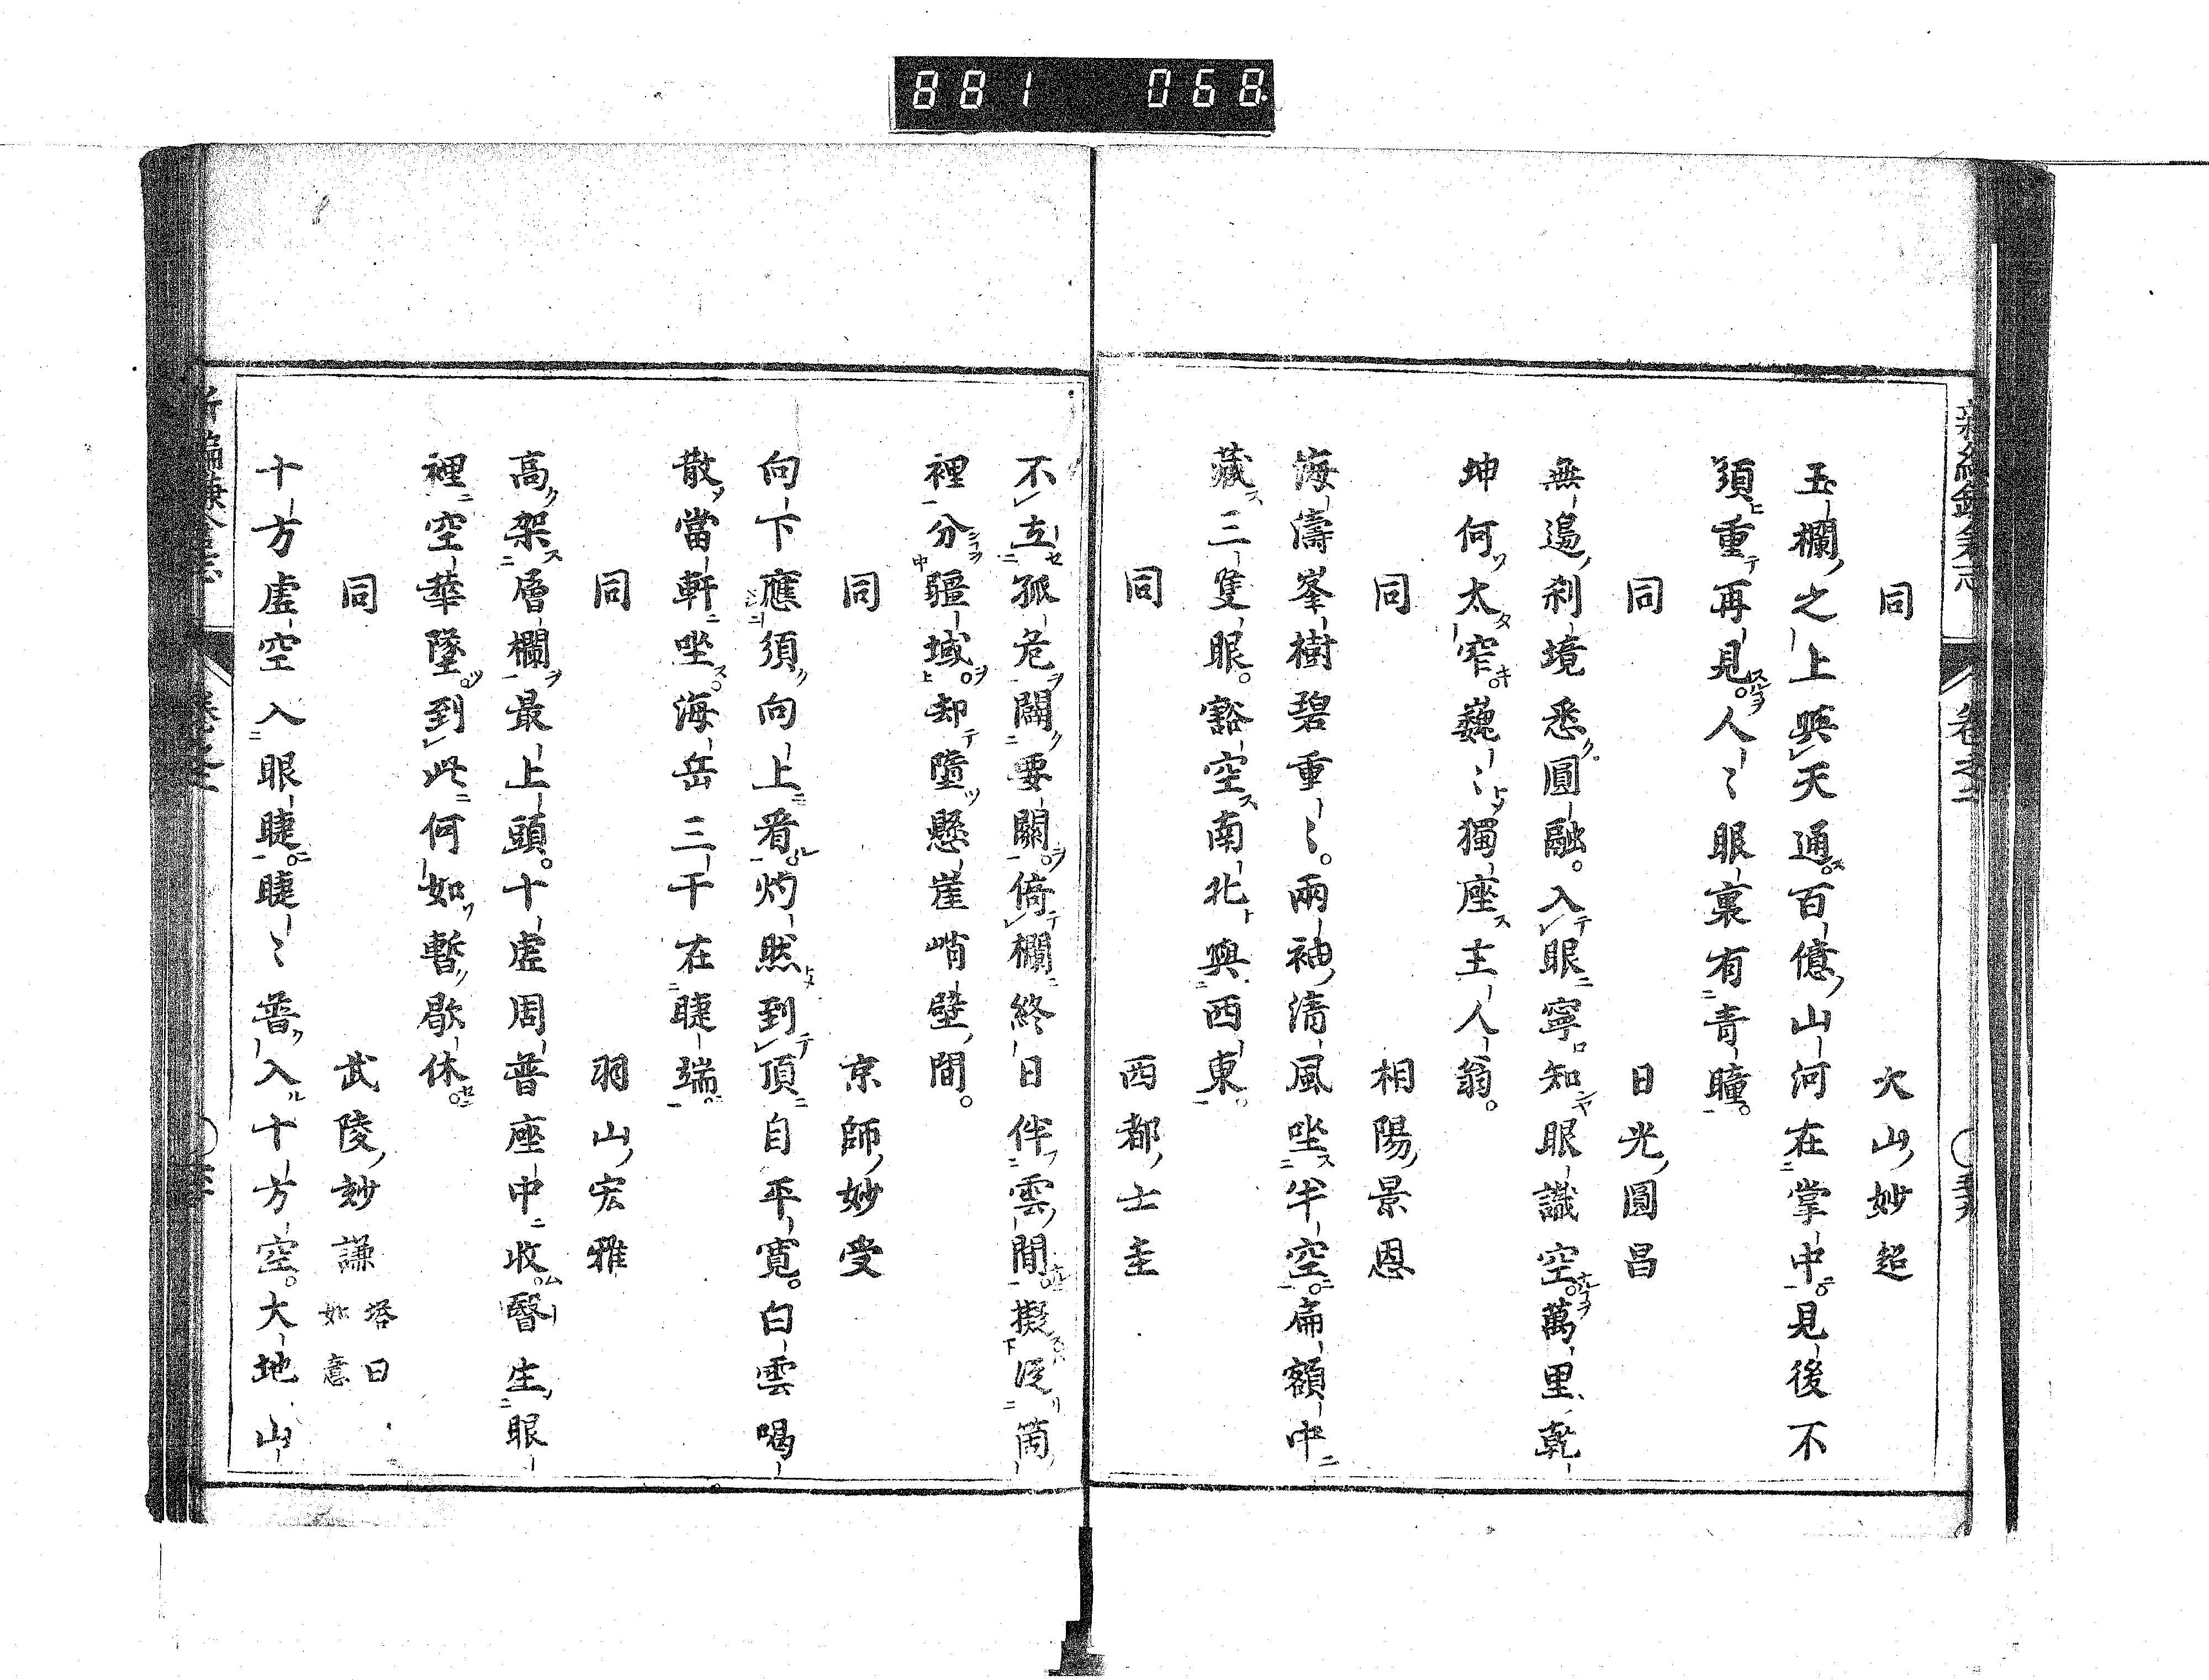 881 068
同 大山妙超
玉欄之上與天通。百億山河在掌中。見後不
須重再見。人〻眼裏有青瞳。
同 日光圓昌
無邊刹境悉圓融。入眼寧知眼識空。萬里乾
坤何太窄。巍〻獨座主人翁。
同 相陽景恩
海濤峯樹碧重〻。兩袖清風坐半空。扁額中
藏三隻眼。豁空南北與西東。
同 西都士圭
不立孤危闢要關。倚欄終日伴雲間。擬從箇
裡分疆域。却墮懸崖峭壁間。
同 京師妙受
向下應須向上看。灼然到頂自平寬。白雲喝
散當軒坐。海岳三千在睫端。
同 羽山宏雅
高架層欄最上頭。十虛周普座中收。瞖生眼
裡空華墜。到此何如暫歇休。
同 武陵妙謙 塔曰如意
十方虛空入眼睫。睫〻普入十方空。大地山